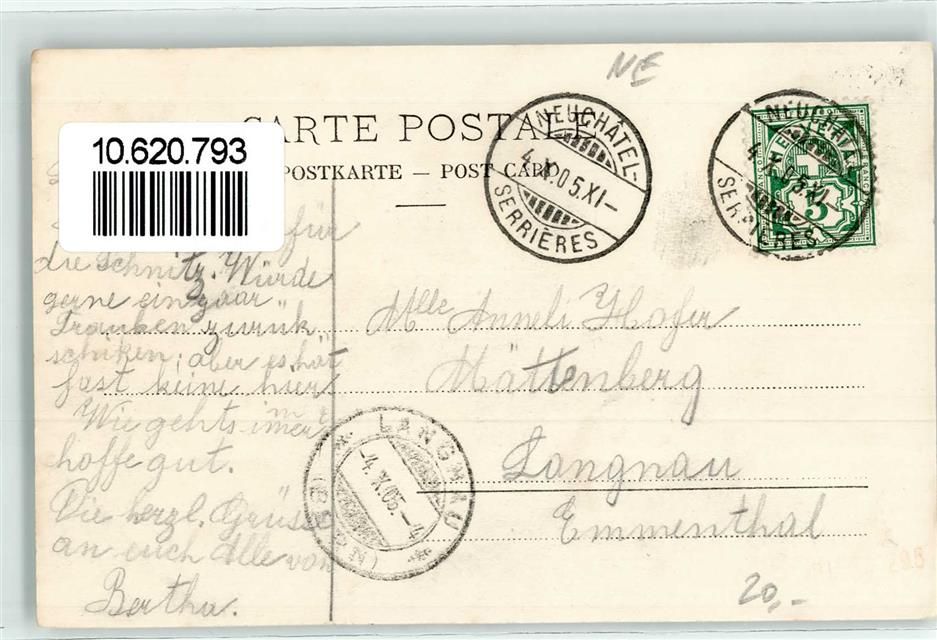 NE
CARTE POSTALE
POSTKARTE — POST CARD
10.620.793
NEUCHÂTEL-
4.X.05.XI—
SERRIÈRES
NEUCHÂTEL-
4.X.05.XI—
SERRIÈRES
HELVETIA
5
für
die Schnitz. Würde
gerne ein paar
Trauben zurük
schiken, aber es hat
fast keine hier
Wie gehts immer
hoffe gut.
Die herzl. Grüsse
an euch Alle von
Bertha.
Mlle Anneli Hofer
Mättenberg
Langnau
Emmenthal
LANGNAU
-4.X.05.-4
(BERN)
20,-